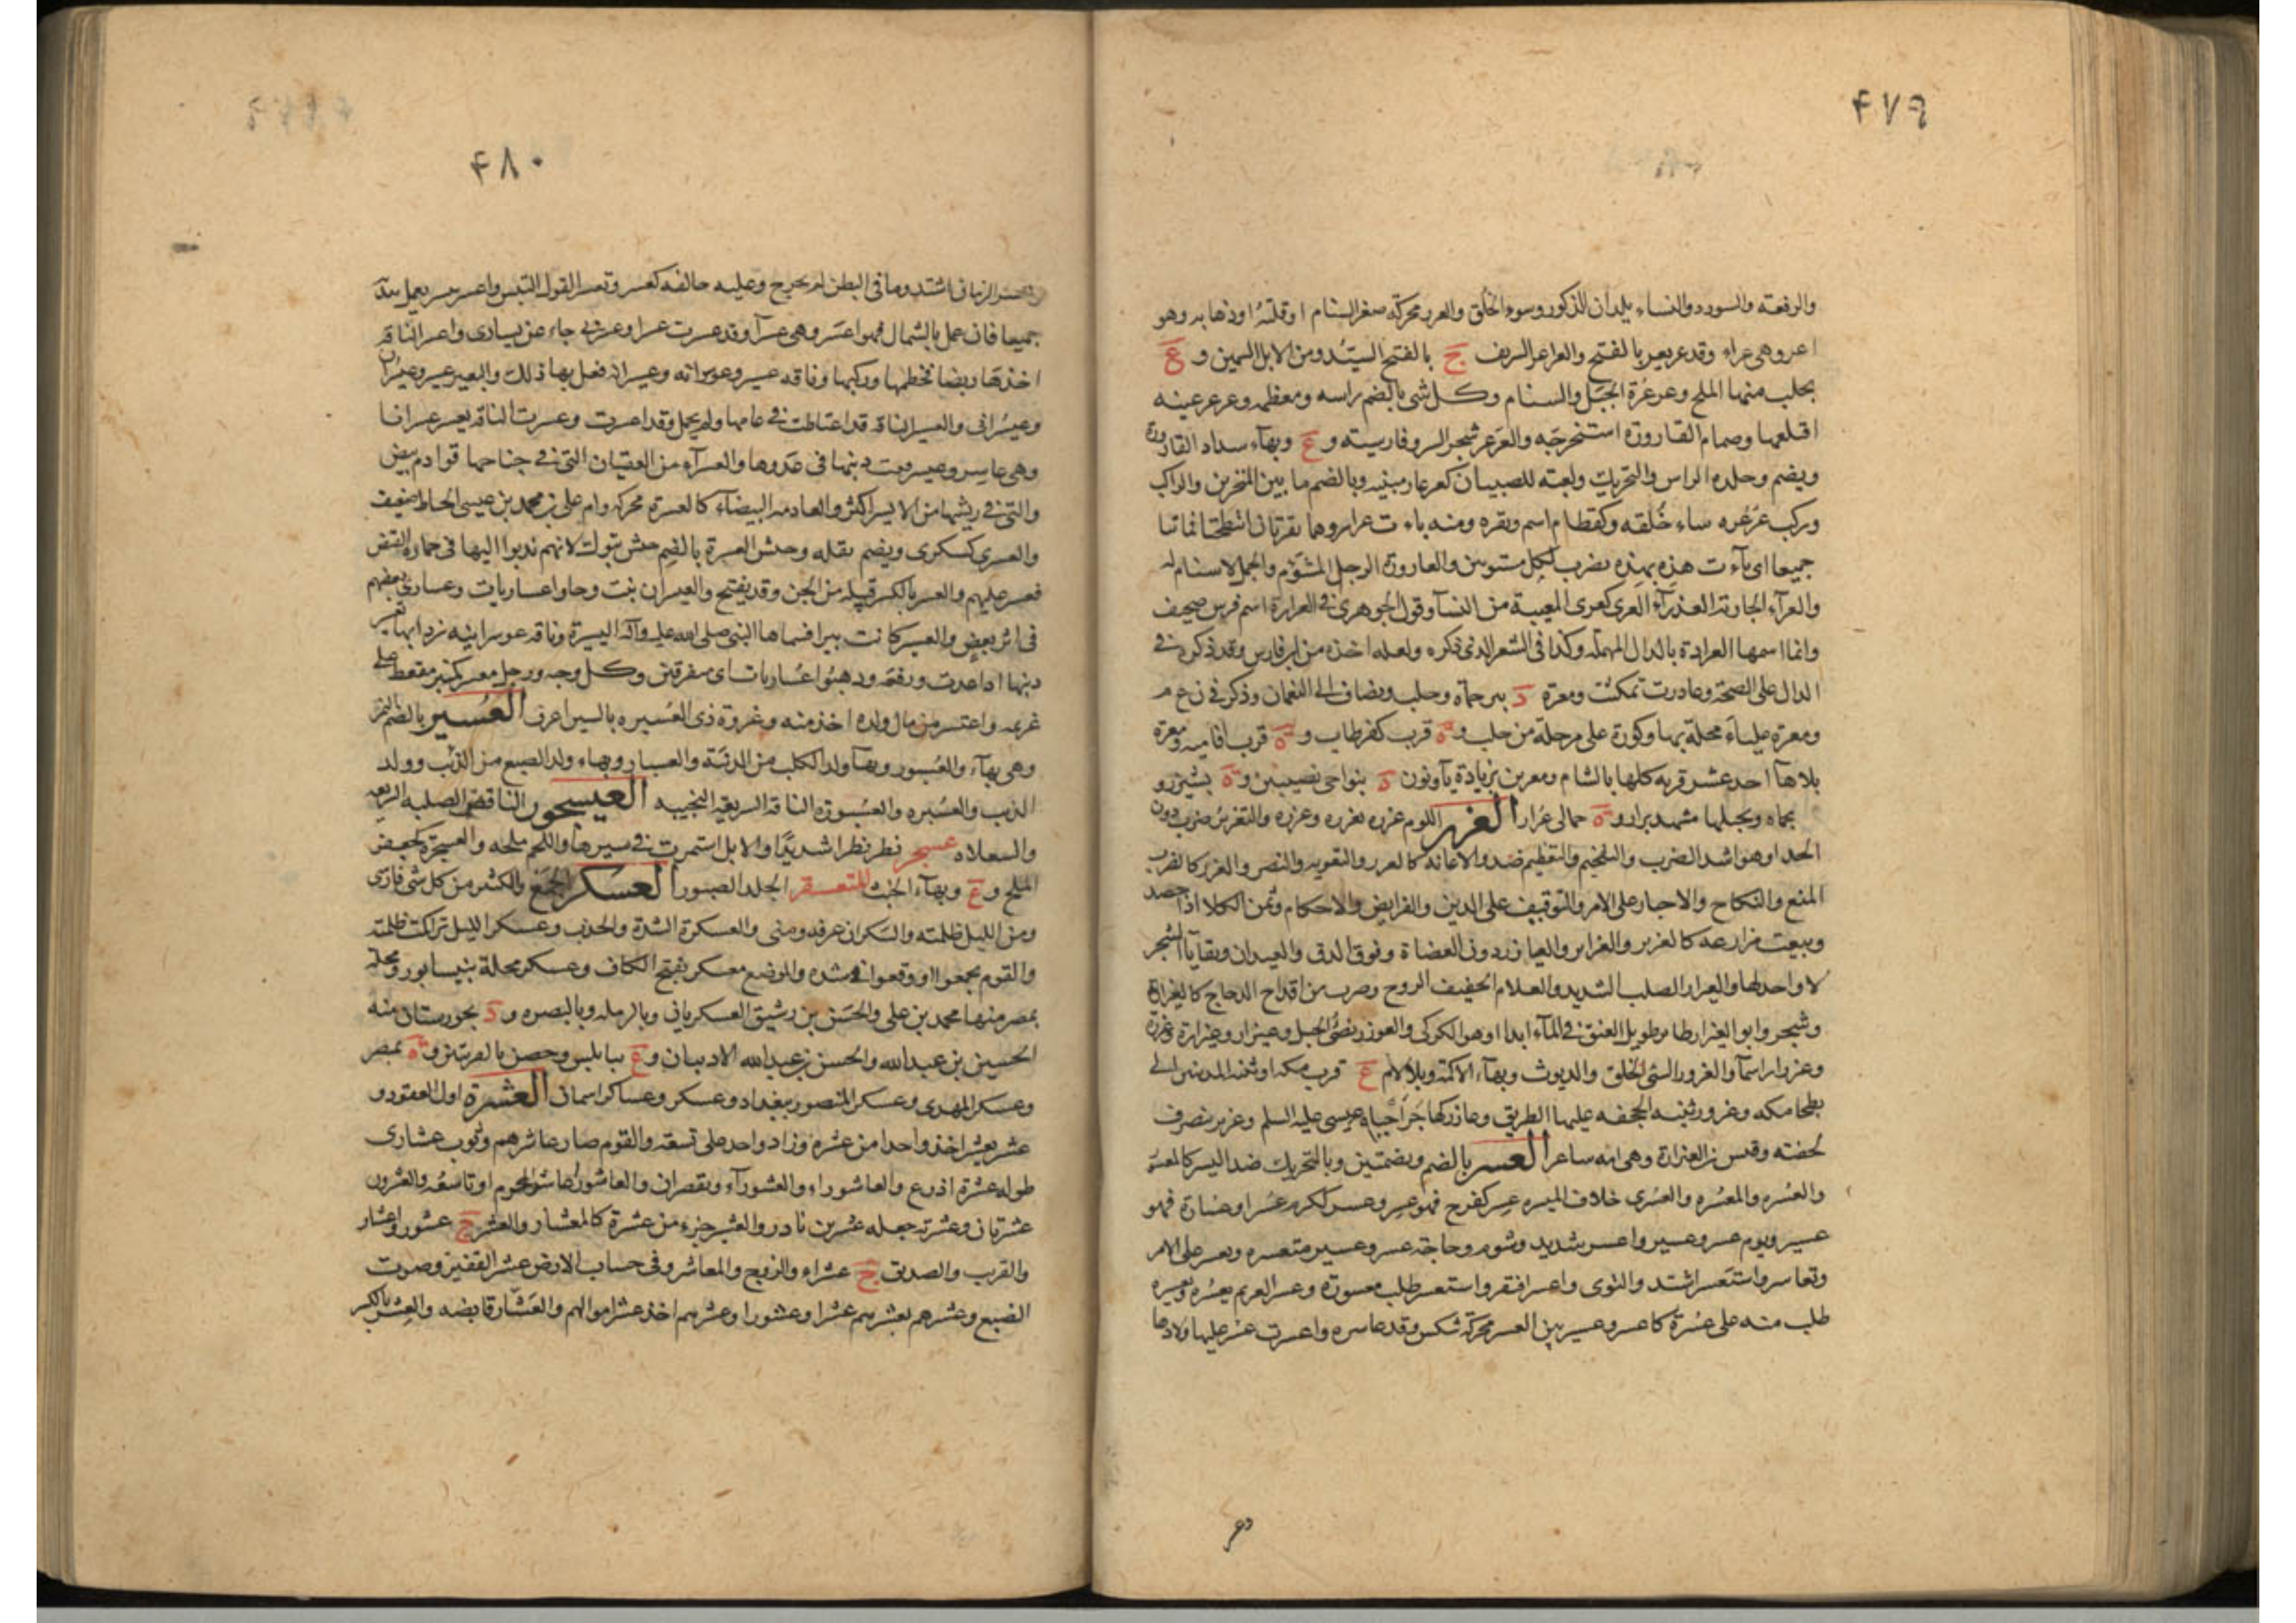 ۴۷۹
والرفعته والسودد والنساء يلدان الذكور وسوء الخلق والعرر محركة صغر السنام او قلته او ذهابه وهو
اعر وهى عراء وقد عر يعر بالفتح والعراعر الشريف ج بالفتح السيد ومن الابل السمين و ع
يجلب منها الملح وعرعرة الجبل والسنام وكل شى بالضم راسه ومعظمه وعرعر عينه
اقتلعها وصمام القارورة استخرجه والعرعر شجر السرو فارسيته و ع وبهاء سداد القارورة
ويضم وجلدة الراس والتحريك ولعبة للصبيان كعرعار مبنيه وبالضم ما بين المنخرين والراكب
وركب عرعره ساء خلقه وكقطام اسم وبقره ومنه باءت عرار وهما بقرتان انتطحتا فماتتا
جميعا اى باءت هذه بهذه يضرب لكل مستويين والعارورة الرجل المشؤم والجمل لا سنام له
والعرآء الجارية العذرآء العرى كعزى المعيبة من النسآ وقول الجوهرى فى العرارة اسم فرس تصحيف
وانما اسمها العرادة بالدال المهملة وكذا فى الشعر الذى ذكره ولعله اخذه من ابن فارس وقد ذكره فى
الدال على الصحة وعاررت تمكثت ومعرة د بين حماه وحلب ويضاف الى النعمان وذكر فى ن ع م
ومعرة علياء محلة بها وكورة على مرحلة من حلب و ة قرب كفرطاب و ة قرب افاميه ومعرة
بلا هآ احد عشر قريه كلها بالشام ومعرين بزيادة يآ ونون د بنواحى نصيبين و ة بشيزر و
بحماه وبجبلها مشهد يزار و ة حمالى عزاز العزر اللوم عزره يعزره وعزره والتعزير ضرب دون
الحد او هو اشد الضرب والتفخيم والتعظيم ضد والاعانة كالعزر والتقويه والنصر والعزر كالضرب
المنع والنكاح والاجبار على الامر والتوقيف على الدين والفرايض والاحكام وثمن الكلا اذا حصد
وبيعت مزارعه كالعزير والعزاير والعيازر دون العضاة وفوق الدق والعيدان وبقايآ الشجر
لا واحد لها والعيزار الصلب الشديد والغلام الخفيف الروح وضرب من اقداح الزجاج كالعيزارية
وشجر وابو العيزار طاير طويل العنق فى المآء ابدا او هو الكركى والعوزر نصى الجبل وعيزار وعيزارة وعزرة
وعزران اسمآ والعزور السئ الخلق والديوث وبهآء الاكمة وبلا لام ع قرب مكه او ثنية المدينين الى
بطحا مكه وعزور ثنية الجحفه عليها الطريق وعازر كهاجر احياه عيسى عليه السلم وعزير ينصرف
لخفته وقيس بن العيزارة وهى امه شاعر العسر بالضم وبضمتين وبالتحريك ضد اليسر كالمعسور
والعسرة والمعسرة والعسرى خلاف الميسره عسر كفرح فهو عسر وعسر ككرم عسرا وعسارة فهو
عسير ويوم عسر وعسير واعسر شديد وشوم وحاجة عسر وعسير متعسره وتعسر على الامر
وتعاسر واستعسر اشتد والتوى واعسر افتقر واستعسر طلب معسوره وعسر الغريم يعسره ويعسره
طلب منه على عسرة كاعسر وعسير بين العسر محركة شكس وقد عاسره واعسرت عسر عليها ولادها
وعر
۴۸۰
وعسر الزمان اشتد وما فى البطن لم يخرج وعليه خالفه كعسر وتعسر القول التبس واعسر يسر يعمل بيديه
جميعا فان عمل بالشمال فهو اعسر وهى عسرآ وقد عسرت عسرا وعسرنى جاء عن يسارى واعسر الناقة
اخذها ريضا فخطمها وركبها وناقه عسير وعوسرانه وعيسرانه فعل بها ذلك والبعير عسير وعيسران
وعيسرانى والعسير الناقة قد اعتاطت فى عامها ولم تحمل وقد اعسرت وعسرت الناقة تعسر عسرانا
وهى عاسر وعسير رفعت ذنبها فى عدوها والعسرآء من العقبان التى فى جناحها قوادم بيض
والتى فى ريشها من الايسر اكثر والقادمه البيضاء كالعسرة محركة وام على بن محمد بن عيسى الخياط ضعيف
والعسرى كسكرى ويضم بقله وجيش العسرة بالضم جيش تبوك لانهم ندبوا اليها فى حمارة القيض
فعسر عليهم والعسر بالكسر قبيلة من الجن وقد يفتح والعسران نبت وجاوا عساريات وعسارى بعضهم
فى اثر بعض والعسير كانت بيرا فسماها النبى صلى الله عليه وآله اليسيرة وناقه عوسرانيه تعسر
ذنبها اذا عدت ورفعه وذهبوا عساريات اى متفرقين وكل وجه ورجل معسر كمنبر مقعط على
غريمه واعتسر من مال ولده اخذ منه وغزوة ذى العسيره بالسين اعرف العسبر بالضم النمر
وهى بهآء والعسبور وبهآ ولد الكلب من الذئبة والعسبار وبهاء ولد الضبع من الذئب وولد
الذيب والعسبره والعسبورة الناقة السريعة النجيبه العيسجور الناقة الصلبه السريعه
والسعلاه عسجر نظر نظرا شديدا والابل استمرت فى سيرها واللحم ملحه والعسجر كجعفر
الملح و ع وبهآء الخبث المتعسقر الجلد الصبور العسكر الجمع والكثير من كل شى فارسى
ومن الليل ظلمته والسكران عرفه ومنى والعسكرة الشدة والجدب وعسكر الليل تراكت ظلمته
والقوم تجمعوا او وقعوا فى شده والموضع معسكر بفتح الكاف وعسكر محلة بنيسابور ومحلة
بمصر منها محمد بن على والحسن بن رشيق العسكريانى وبالرمله وبالبصره و د بخورستان منه
الحسين بن عبدالله والحسن بن عبدالله الاديبان و ع بنابلس وحصن بالقريتين و ة بمصر
وعسكر المهدى وعسكر المنصور ببغداد وعسكر وعساكر اسمان العشرة اول العقود و
عشر يعشر اخذ واحدا من عشره وزاد واحد على تسعة والقوم صار عاشرهم وثوب عشارى
طوله عشرة اذرع والعاشوراء والعشورآء ويقصران والعاشور عاشر المحرم او تاسعه والعشرون
عشرتان وعشرنه جعله عشرين نادر والعشير جزء من عشرة كالمعشار والعشر ج عشور واعشار
والقرب والصديق ج عشراء والزوج والمعاشر وفى حساب الارض عشر القفيز وصوت
الضبع وعشرهم يعشرهم عشرا وعشورا وعشرهم اخذ عشر اموالهم والعشار قابضه والعشر بالكسر